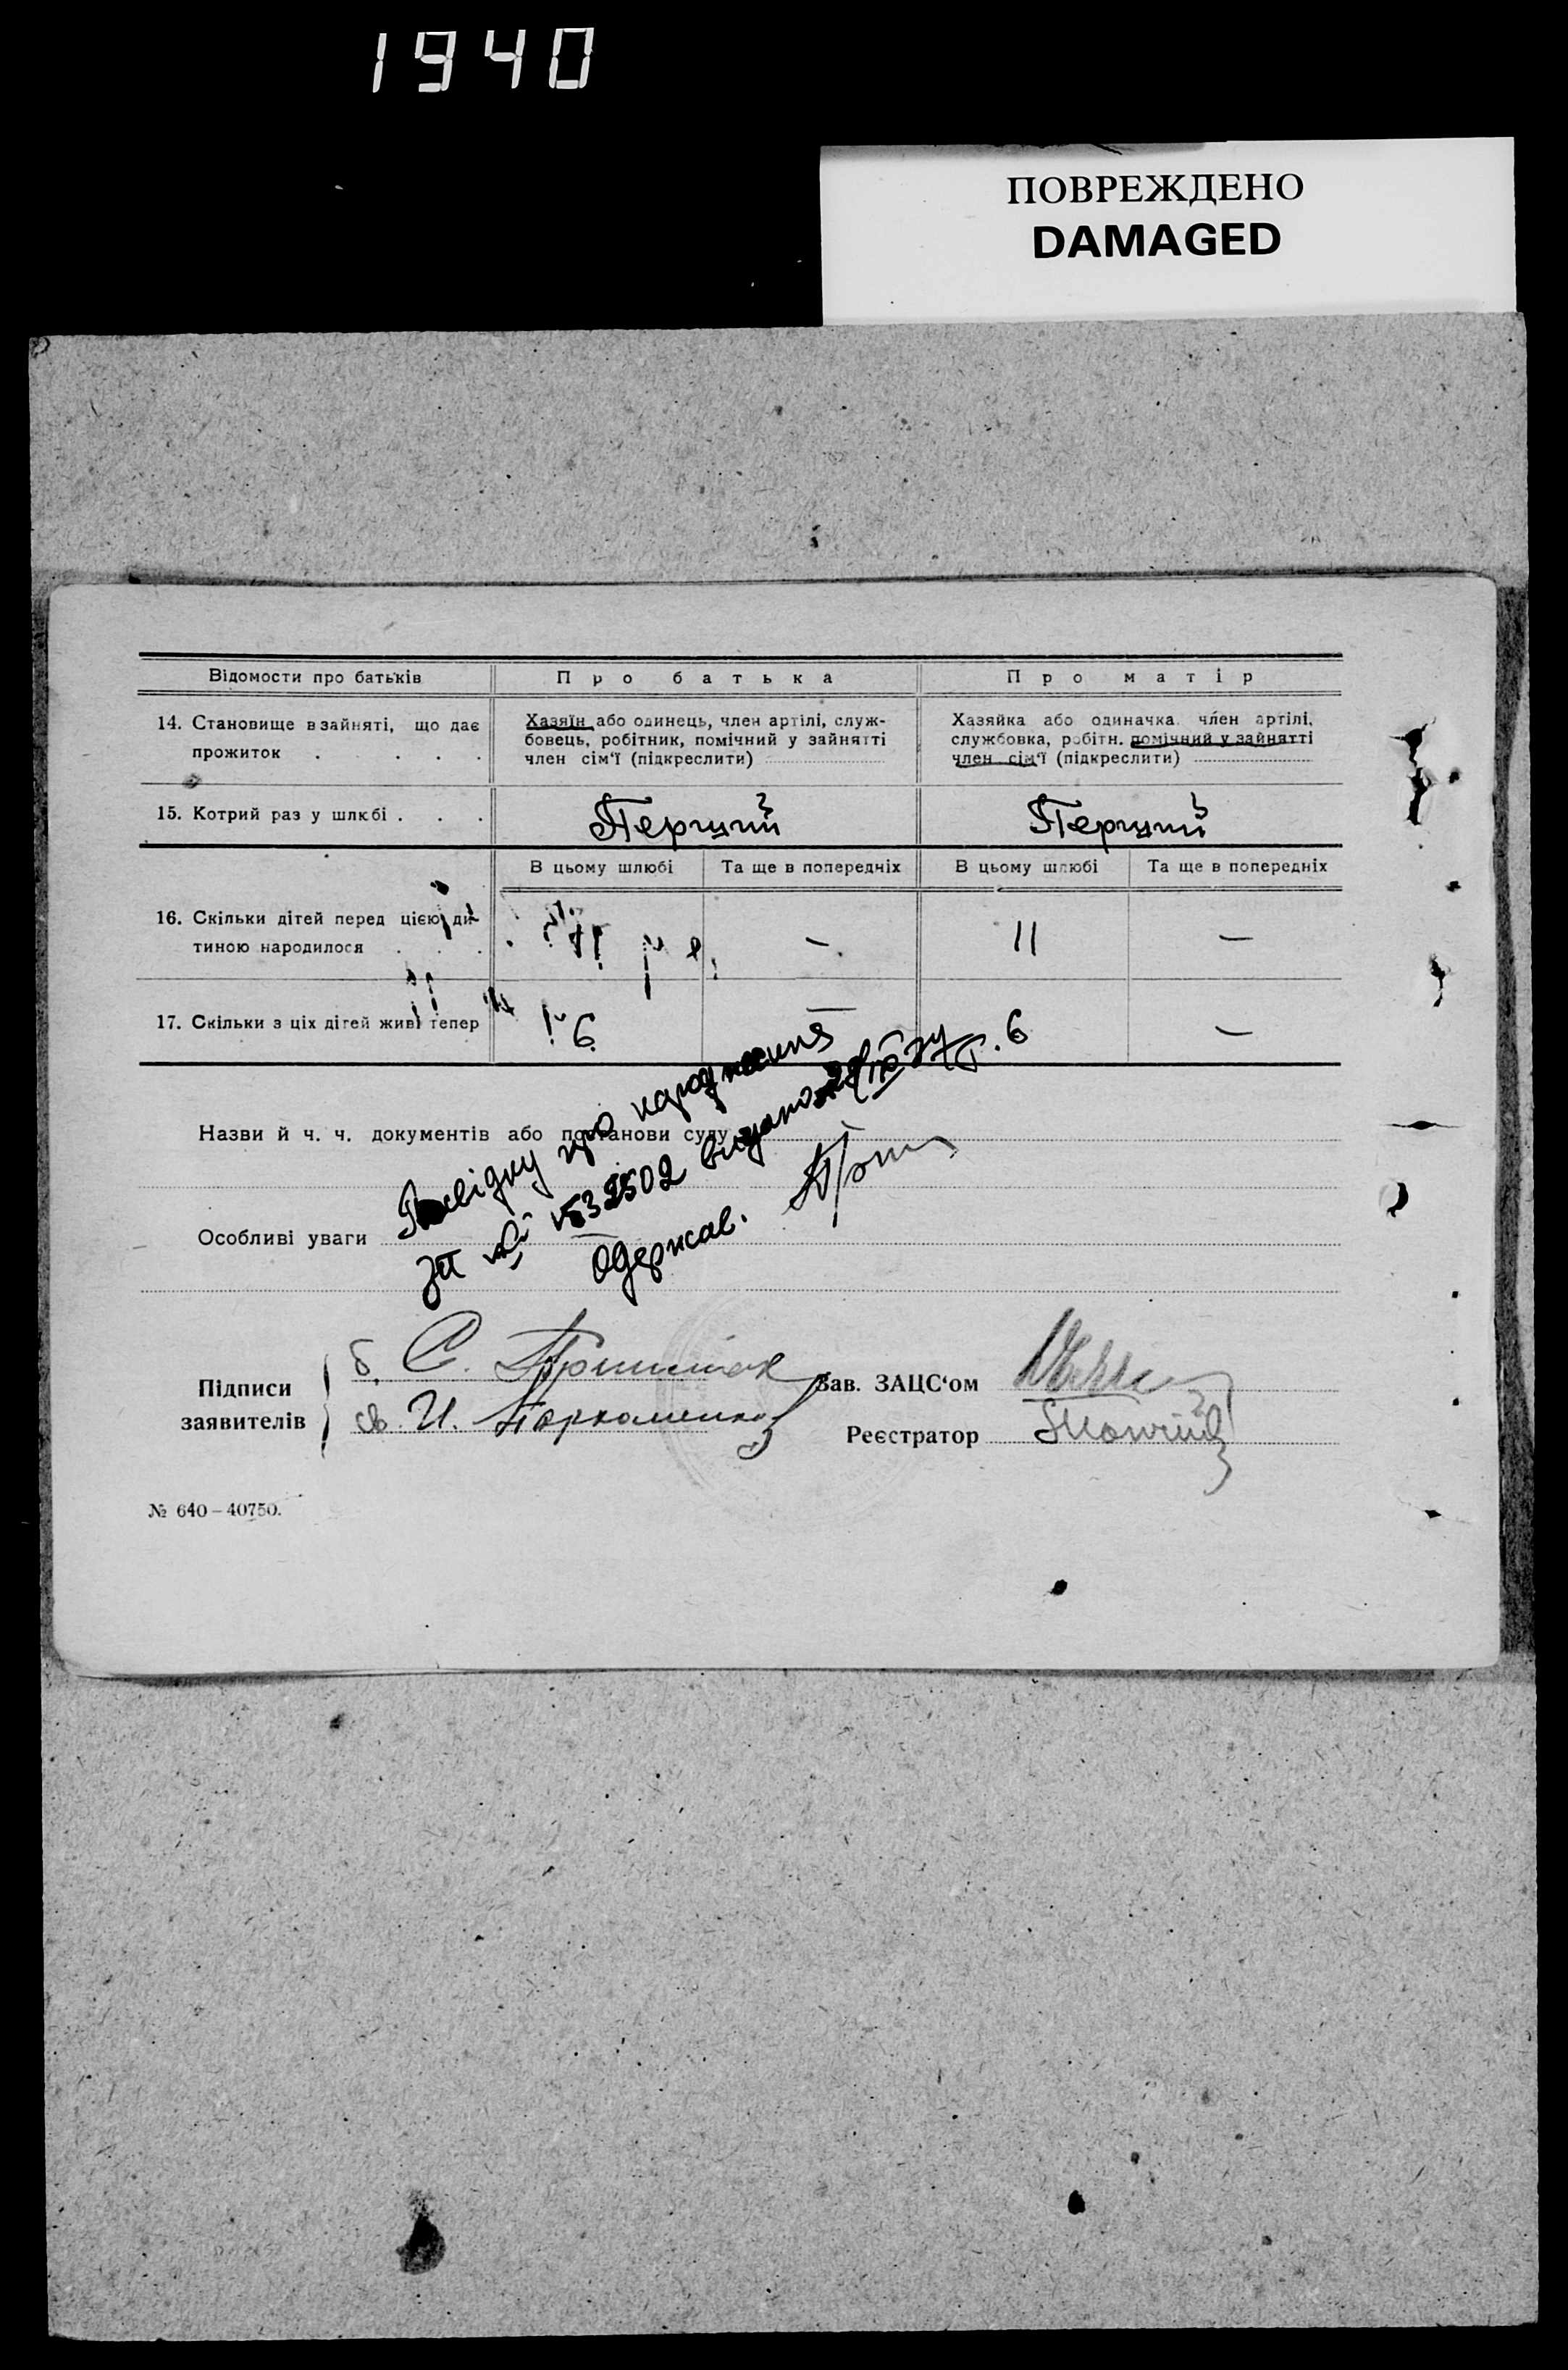 1940
ПОВРЕЖДЕНО
DAMAGED
Відомости про батьків
Про батька
Про матір
14. Становище в зайняті, що дає прожиток . . . .
Хазяїн або одинець, член артілі, служ-
бовець, робітник, помічний у зайнятті
член сім'ї (підкреслити)
Хазяйка або одиначка член артілі,
службовка, робітн. помічний у зайнятті
член сім'ї (підкреслити)
15. Котрий раз у шлюбі . . .
Перший
Перший
В цьому шлюбі
Та ще в попередніх
В цьому шлюбі
Та ще в попередніх
16. Скільки дітей перед цією ди-
тиною народилося . . .
11
—
11
—
17. Скільки з ціх дітей живі тепер
6
—
6
—
Назви й ч. ч. документів або постанови суду
Посвідку про народження
за № 532502 видано
Одержав.
Особливі уваги
Підписи
заявителів
б. С.
св. И. Пархоменко
Зав. ЗАЦС'ом
Реєстратор
№ 640–40750.